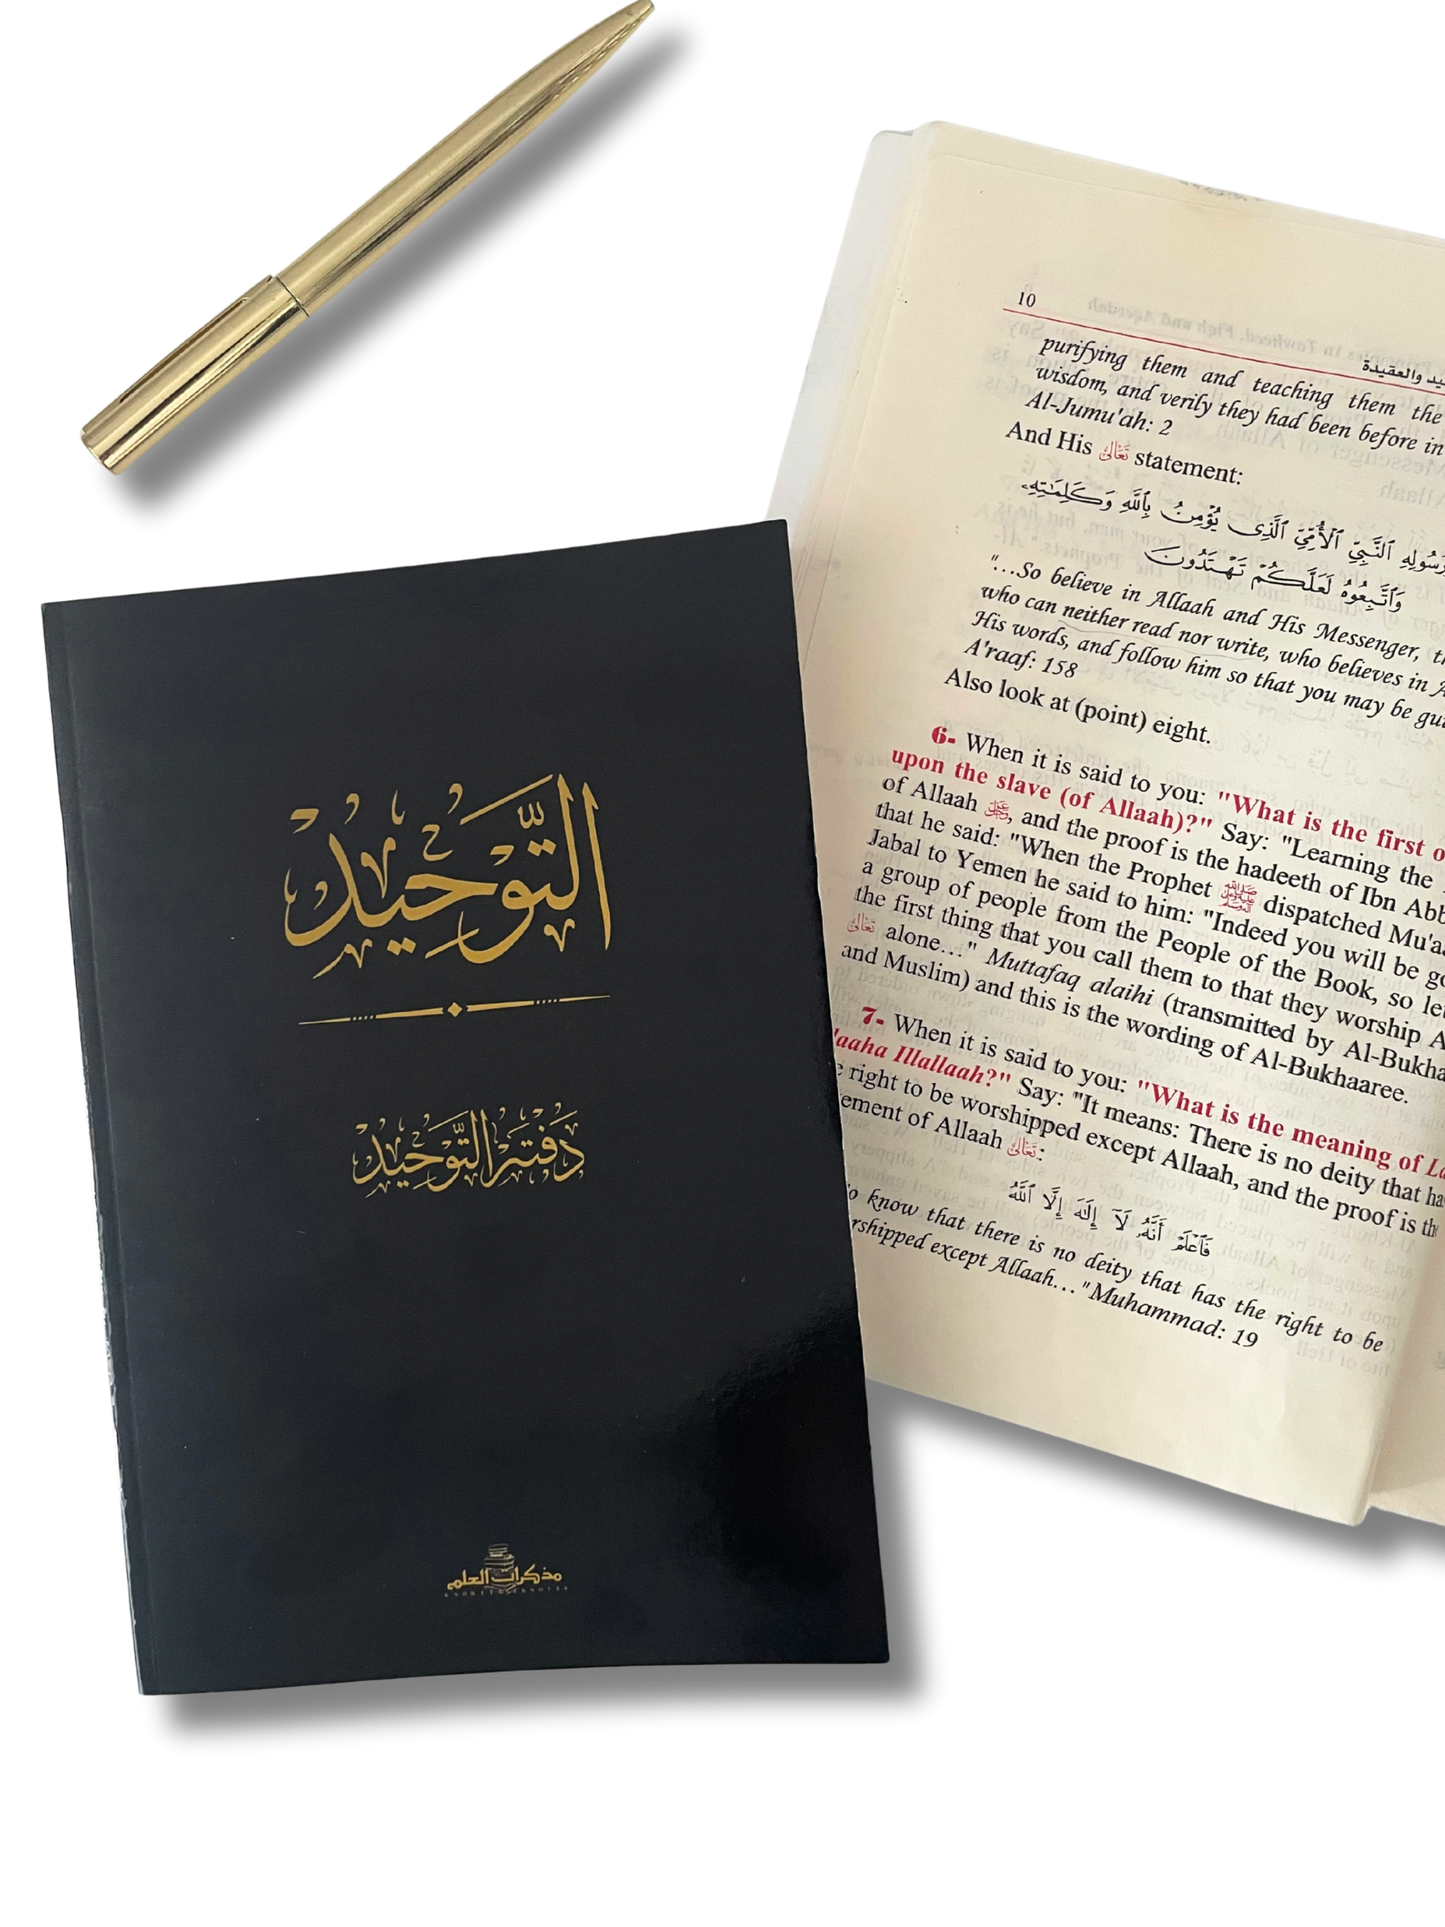 التَّوْحِيد
دَفْتَر التَّوْحِيد
مذكرات العلم
10
purifying them and teaching them the
wisdom, and verily they had been before in
Al-Jumu'ah: 2
And His تَعَالَىٰ statement:
ٱلنَّبِيِّ ٱلْأُمِّيِّ ٱلَّذِى يُؤْمِنُ بِٱللَّهِ وَكَلِمَـٰتِهِۦ
وَٱتَّبِعُوهُ لَعَلَّكُمْ تَهْتَدُونَ
"...So believe in Allaah and His Messenger,
who can neither read nor write, who believes in
His words, and follow him so that you may be
A'raaf: 158
Also look at (point) eight.
6- When it is said to you: "What is the first
upon the slave (of Allaah)?" Say: "Learning the
of Allaah, and the proof is the hadeeth of Ibn
that he said: "When the Prophet ﷺ dispatched
Jabal to Yemen he said to him: "Indeed you will be
a group of people from the People of the Book, so
the first thing that you call them to that they worship
تَعَالَىٰ alone..." Muttafaq alaihi (transmitted by
and Muslim) and this is the wording of Al-Bukhaaree.
7- When it is said to you: "What is the meaning of
Illallaah?" Say: "It means: There is no deity that
right to be worshipped except Allaah, and the proof is
of Allaah تَعَالَىٰ:
فَٱعْلَمْ أَنَّهُۥ لَآ إِلَـٰهَ إِلَّا ٱللَّهُ
know that there is no deity that has the right to be
except Allaah..." Muhammad: 19